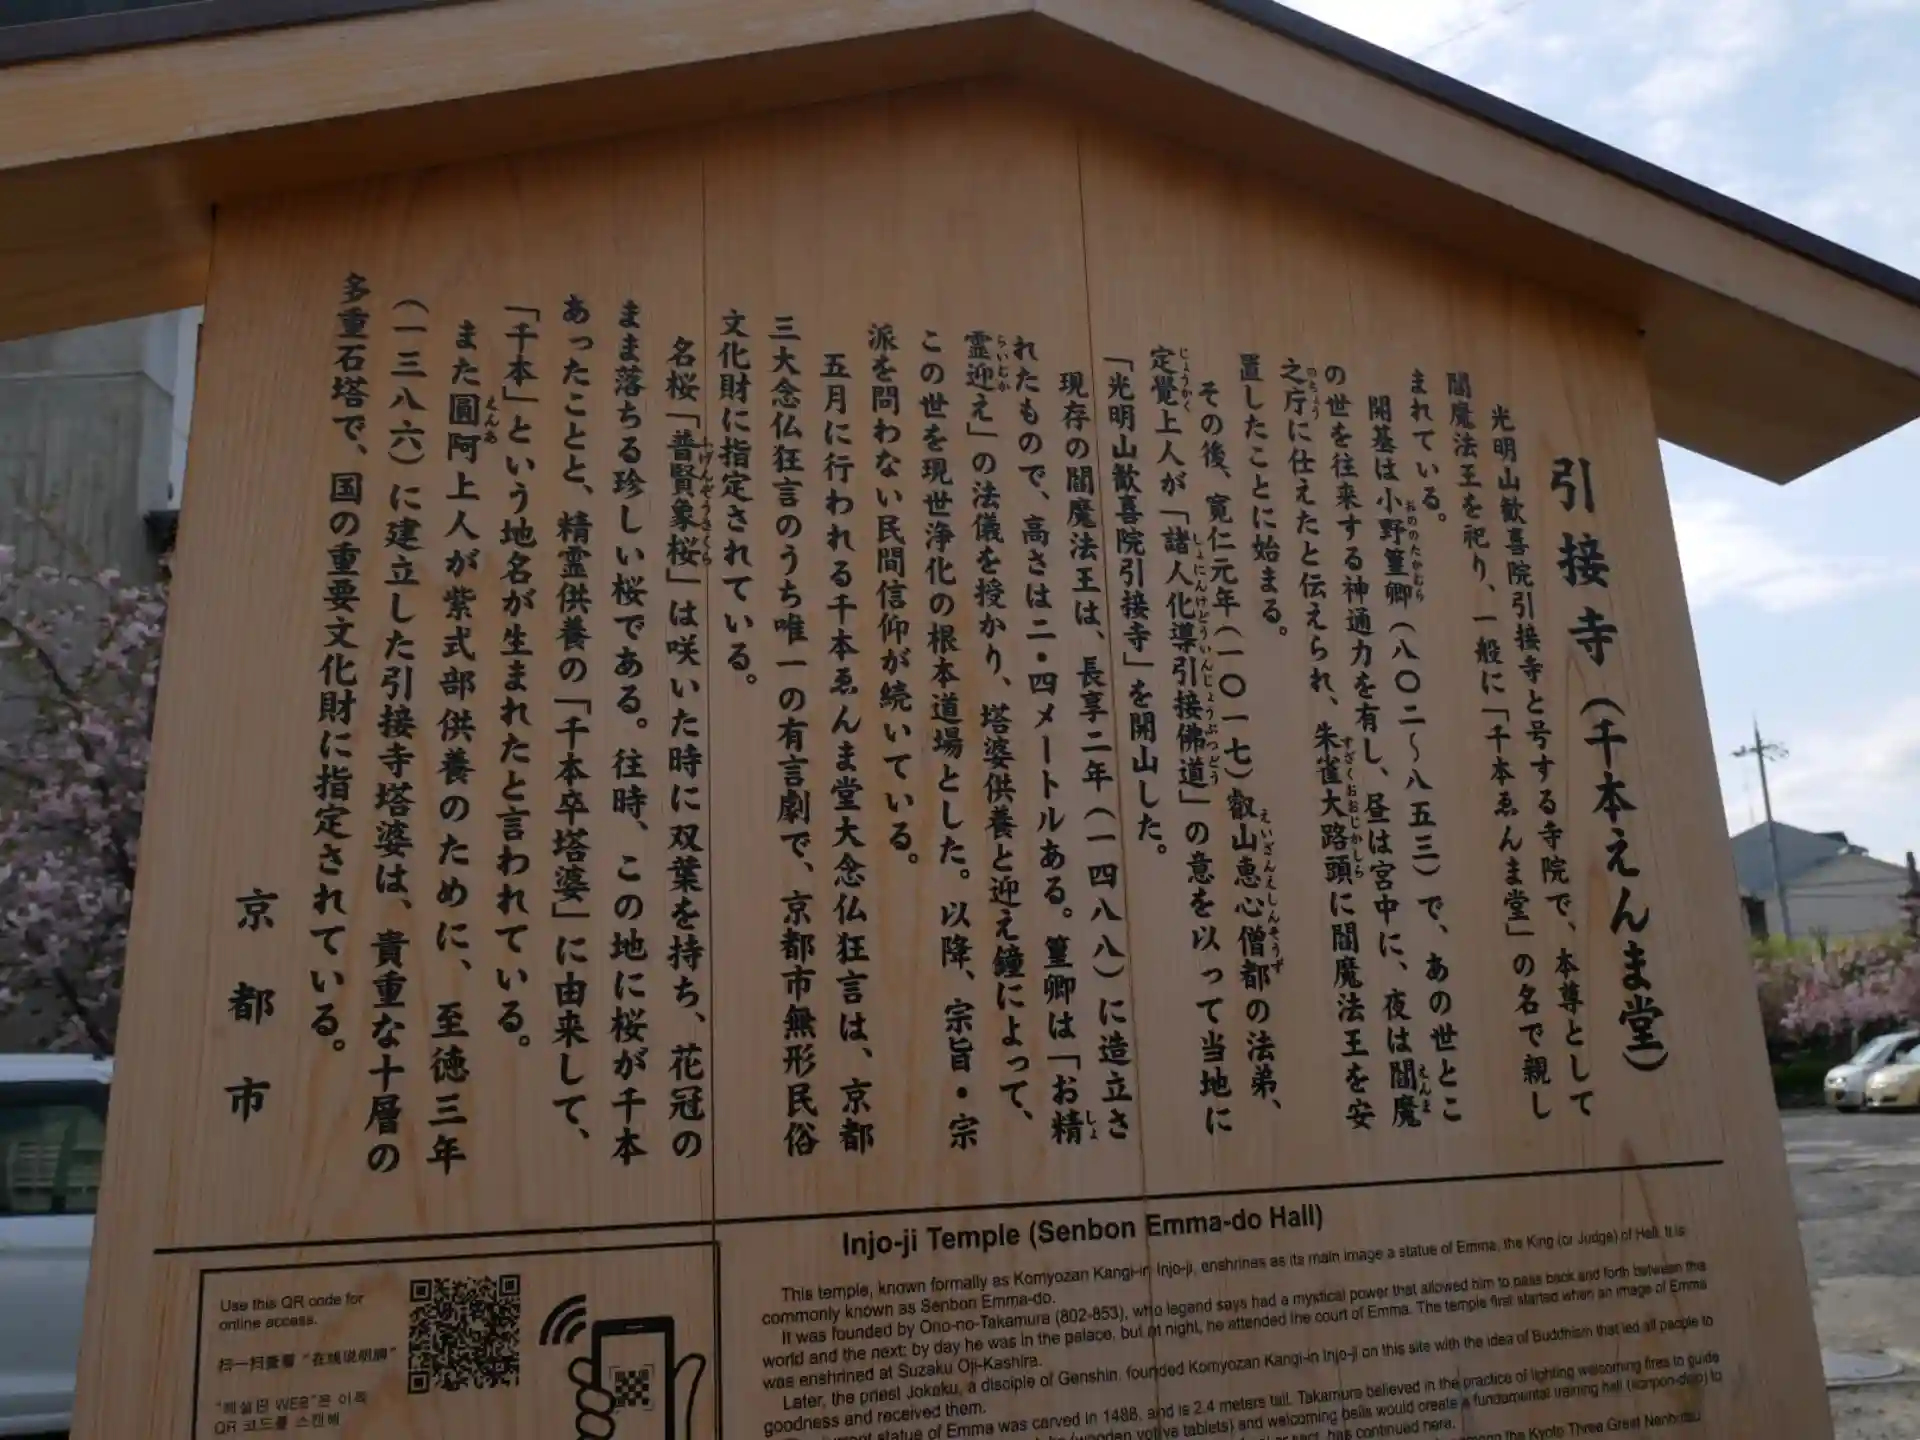 引接寺（千本えんま堂）
光明山歓喜院引接寺と号する寺院で、本尊として
閻魔法王を祀り、一般に「千本ゑんま堂」の名で親し
まれている。
開基は小野篁卿（八〇二～八五三）で、あの世とこ
の世を往来する神通力を有し、昼は宮中に、夜は閻魔
之庁に仕えたと伝えられ、朱雀大路頭に閻魔法王を安
置したことに始まる。
その後、寛仁元年（一〇一七）叡山恵心僧都の法弟、
定覺上人が「諸人化導引接佛道」の意を以って当地に
「光明山歓喜院引接寺」を開山した。
現存の閻魔法王は、長享二年（一四八八）に造立さ
れたもので、高さは二・四メートルある。篁卿は「お精
霊迎え」の法儀を授かり、塔婆供養と迎え鐘によって、
この世を現世浄化の根本道場とした。以降、宗旨・宗
派を問わない民間信仰が続いている。
五月に行われる千本ゑんま堂大念仏狂言は、京都
三大念仏狂言のうち唯一の有言劇で、京都市無形民俗
文化財に指定されている。
名桜「普賢象桜」は咲いた時に双葉を持ち、花冠の
まま落ちる珍しい桜である。往時、この地に桜が千本
あったことと、精霊供養の「千本卒塔婆」に由来して、
「千本」という地名が生まれたと言われている。
また圓阿上人が紫式部供養のために、至徳三年
（一三八六）に建立した引接寺塔婆は、貴重な十層の
多重石塔で、国の重要文化財に指定されている。
京都市
Injo-ji Temple (Senbon Emma-do Hall)
This temple, known formally as Komyozan Kangi-in Injo-ji, enshrines as its main image a statue of Emma, the King (or Judge) of Hell. It is
commonly known as Senbon Emma-do.
It was founded by Ono-no-Takamura (802-853), who legend says had a mystical power that allowed him to pass back and forth between the
world and the next: by day he was in the palace, but at night, he attended the court of Emma. The temple first started when an image of Emma
was enshrined at Suzaku Oji-Kashira.
Later, the priest Jokaku, a disciple of Genshin, founded Komyozan Kangi-in Injo-ji on this site with the idea of Buddhism that led all people to
goodness and received them.
statue of Emma was carved in 1488, and is 2.4 meters tall. Takamura believed in the practice of lighting welcoming fires to guide
(wooden votive tablets) and welcoming bells would create a fundamental training hall (konpon-dojo) to
has continued here.
among the Kyoto Three Great Nenbutsu
Use this QR code for
online access.
扫一扫查看“在线说明牌”
"해설판 WEB"은 이쪽
QR 코드를 스캔해